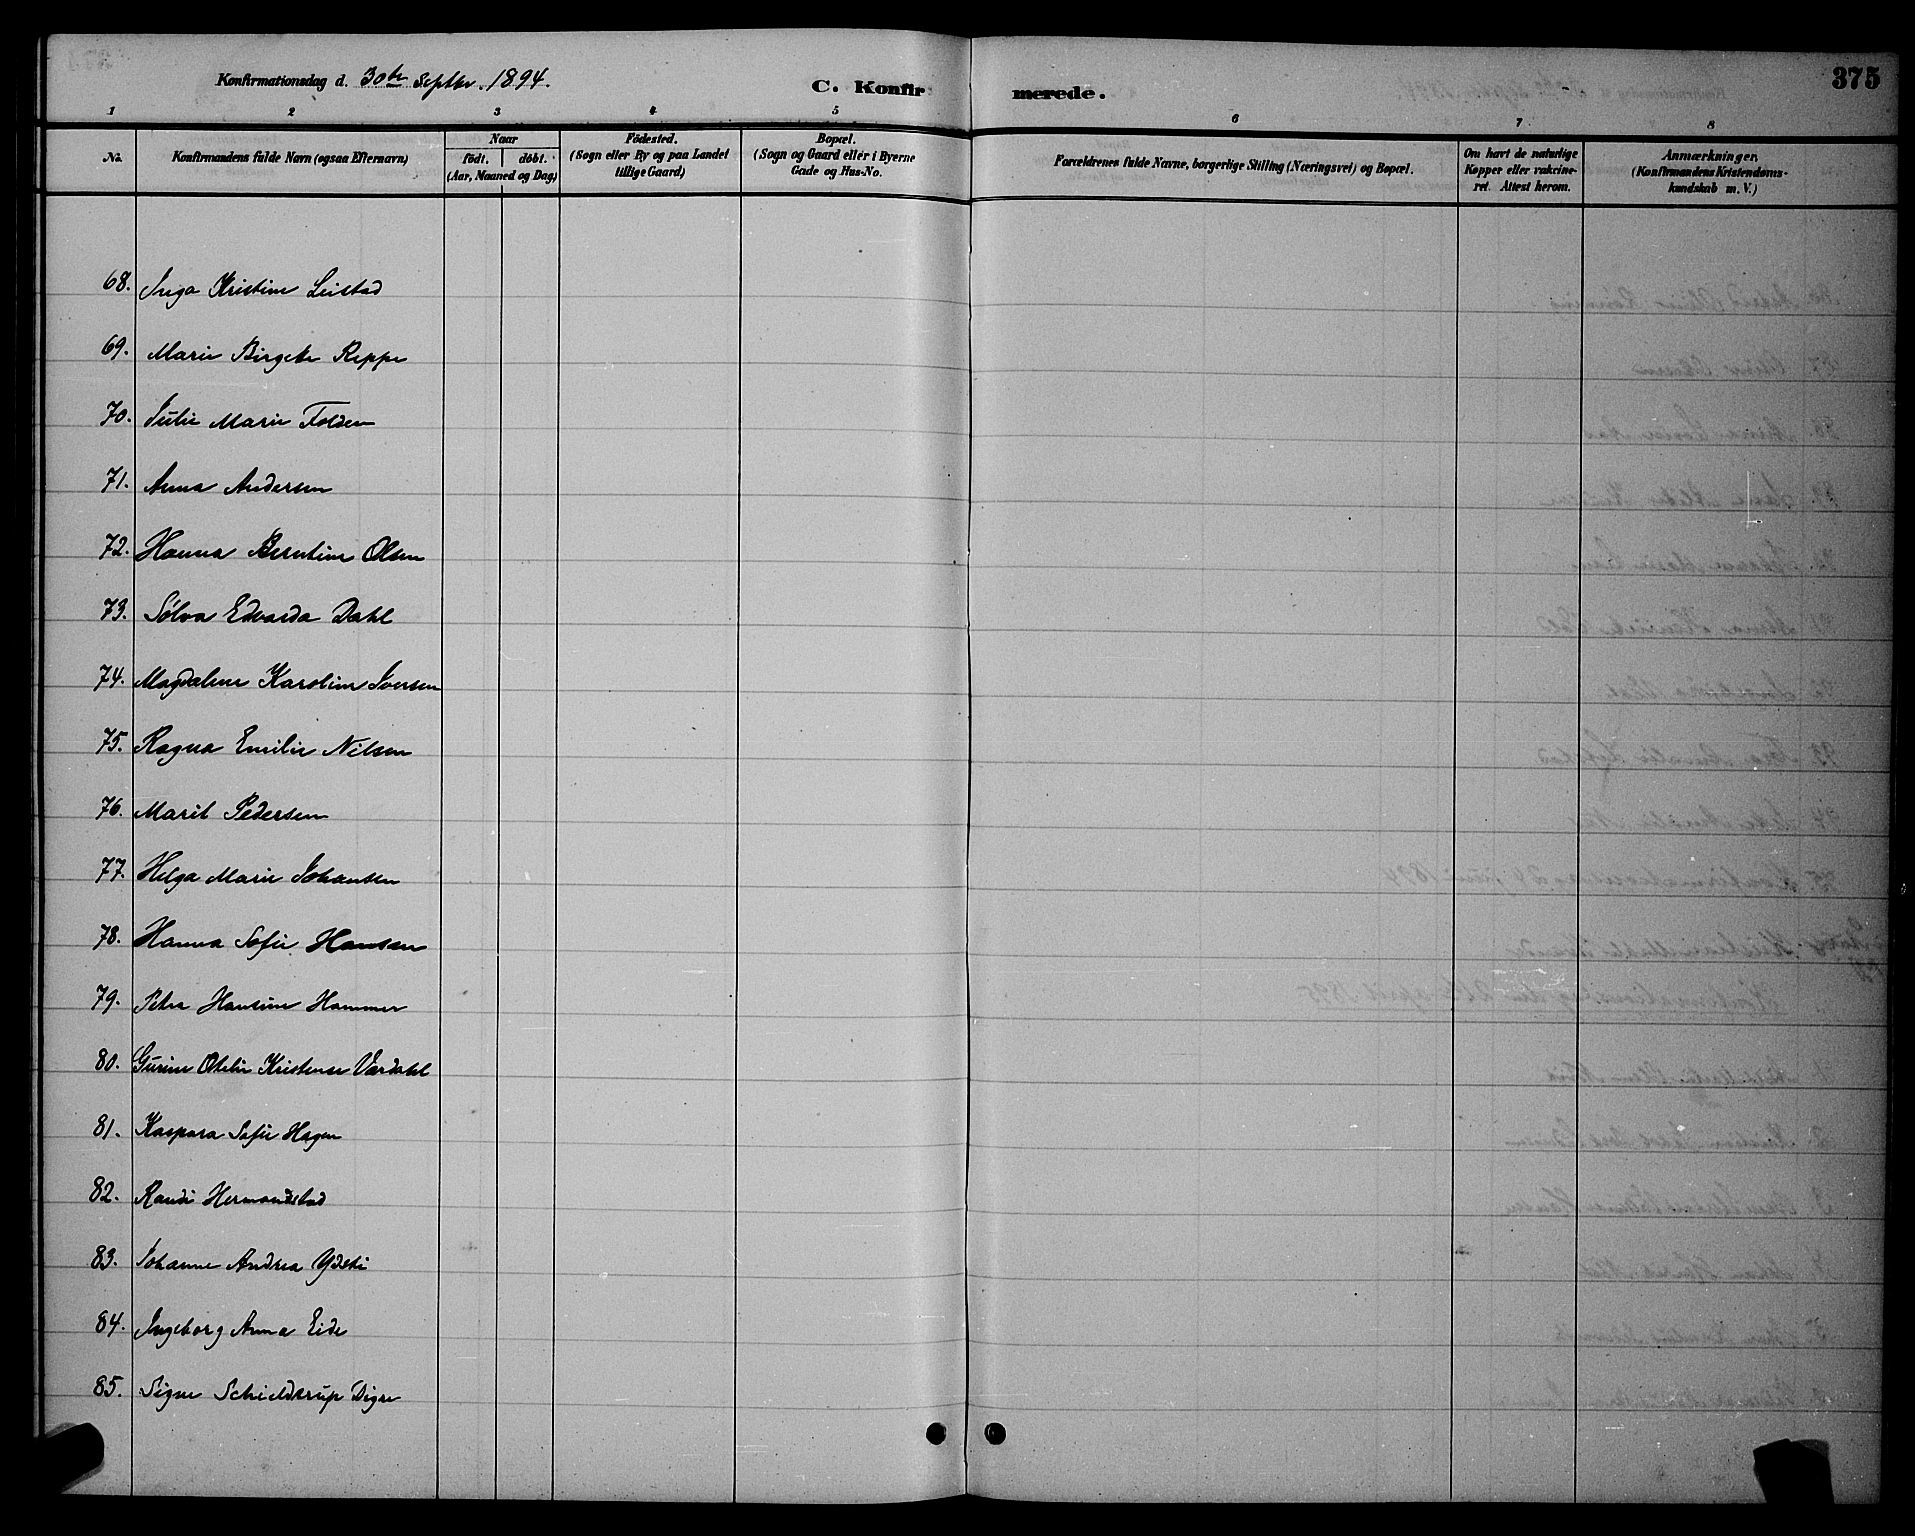 Konfirmationsdag d. 30te Septbr. 1894.
C. Konfirmerede.
375
1 2 3 4 5 6 7 8
No.
Konfirmandens fulde Navn (ogsaa Efternavn)
Naar
født. døbt.
(Aar, Maaned og Dag)
Fødested.
(Sogn eller By og paa Landet
tillige Gaard)
Bopæl.
(Sogn og Gaard eller i Byerne
Gade og Hus-No.
Forældrenes fulde Navne, borgerlige Stilling (Næringsvei) og Bopæl.
Om havt de naturlige
Kopper eller vakcine-
ret. Attest herom.
Anmærkninger.
(Konfirmandens Kristendoms-
kundskab m. V.)
68. Inga Kristine Leistad
69. Marie Birgete Reppe
70. Julie Marie Folden
71. Anna Andersen
72. Hanna Berntine Olsen
73. Sølva Edvarda Dahl
74. Magdalene Karoline Iversen
75. Ragna Emilie Nilsen
76. Marit Pedersen
77. Helga Marie Johansen
78. Hanna Sofie Hansen
79. Petra Hansine Hammer
80. Gurine Otelie Kristense Værdahl
81. Kaspara Sofie Hagen
82. Randi Hermandstad
83. Johanne Andrea Ydsti
84. Ingeborg Anna Eide
85. Signe Schieldstrup Digre